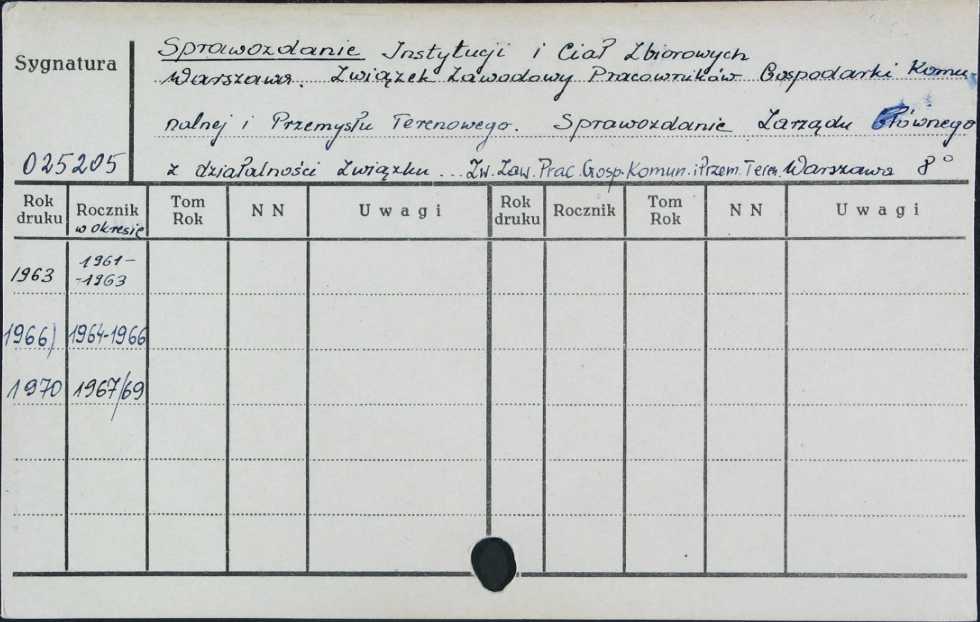 Sygnatura
025205
Sprawozdanie Instytucji i Ciał Zbiorowych
Warszawa. Związek Zawodowy Pracowników Gospodarki Komu-
nalnej i Przemysłu Terenowego. Sprawozdanie Zarządu Głównego
z działalności Związku ... Zw. Zaw. Prac. Gosp. Komun. i Przem. Teren. Warszawa 8°
Rok druku Rocznik w okresie Tom Rok NN Uwagi Rok druku Rocznik Tom Rok NN Uwagi
1963 1961-
-1963
1966) 1964-1966
1970 1967/69